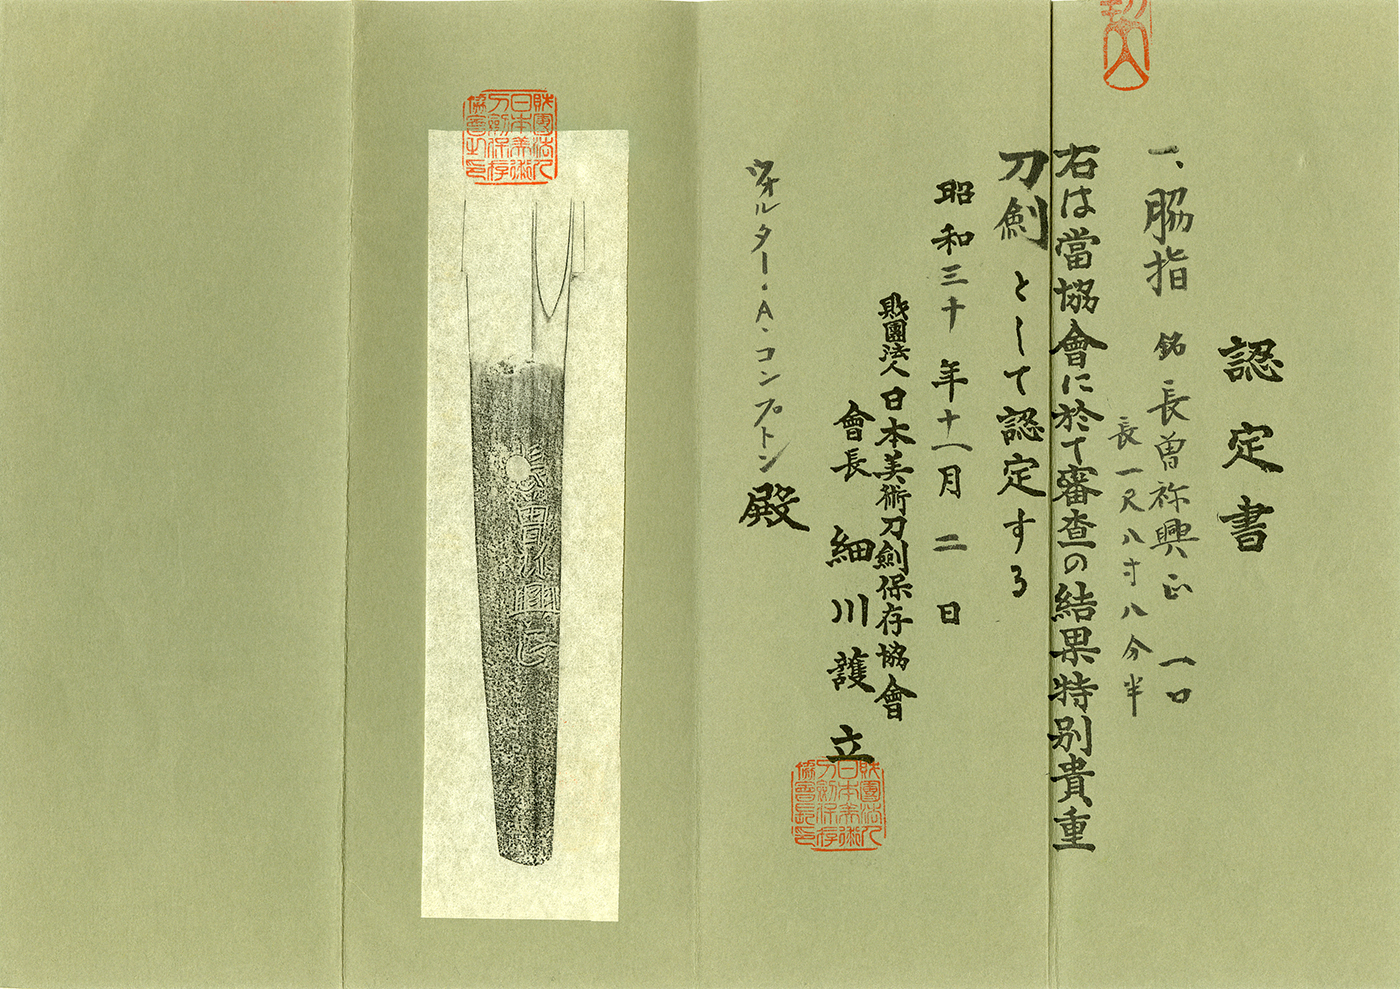 認定書
一、脇指 銘 長曽祢興正 一口
長一尺八寸八分半
右は當協會に於て審査の結果特別貴重
刀劍として認定する
昭和三十年十一月二日
財團法人日本美術刀劍保存協會
會長 細川護立
財團法人日本美術刀劍保存協會長印
ウォルター・A・コンプトン殿
財團法人日本美術刀劍保存協會之印
長曽祢興正